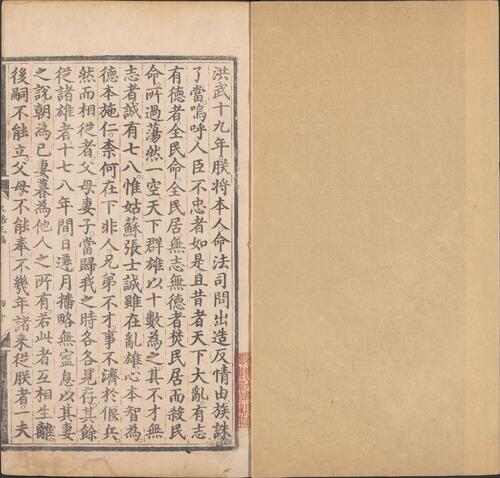 洪武十九年朕將本人命法司問出造反情由族誅
了當嗚呼人臣不忠者如是且昔者天下大亂有志
有德者全民命全民居無志無德者焚民居而殺民
命所過蕩然一空天下群雄以十數為之其不才無
志者誠有七八惟姑蘇張士誠雖在亂雄心本智為
德本施仁柰何在下非人兄弟不才事不濟於偃兵
然而相從者父母妻子當歸我之時各各見存其餘
從諸雄者十七八年間日遷月播略無寧息以其妻
之說朝為已妻暮為他人之所有若此者互相生離
後嗣不能立父母不能奉不幾年諸來從朕者一夫